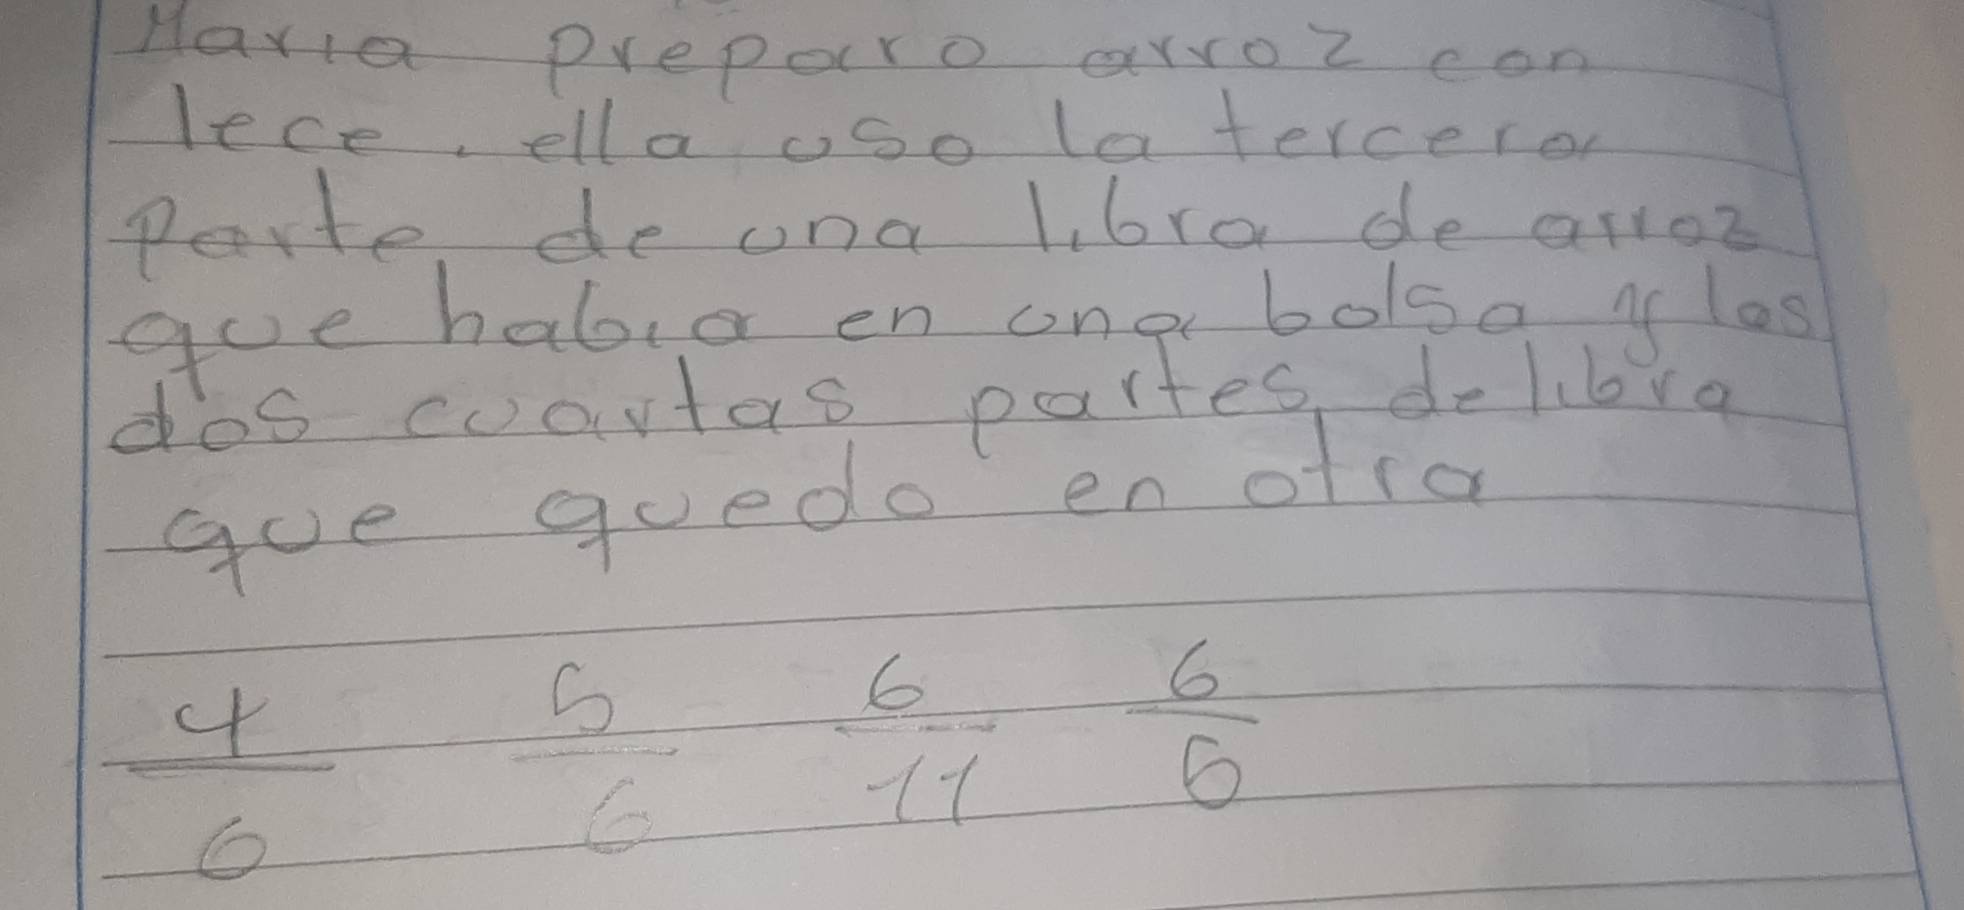 Maria preparo arroz con
lece, ella uso la tercera
parte de una libra de arroz
que habia en una bolsa y las
dos cuartas partes de libra
que quedo en otra
4/6 5/6 6/11 6/6